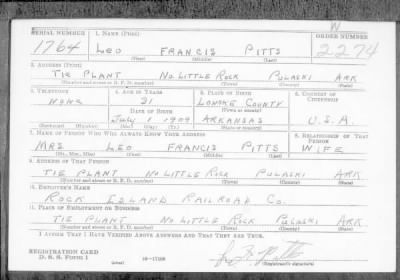 W
SERIAL NUMBER 1. NAME (Print) ORDER NUMBER
1764 LEO FRANCIS PITTS 2274
(First) (Middle) (Last)
2. ADDRESS (Print)
TIE PLANT NO. LITTLE ROCK PULASKI ARK
(Number and street or R. F. D. number) (Town) (County) (State)
3. TELEPHONE 4. AGE IN YEARS 5. PLACE OF BIRTH 6. COUNTRY OF CITIZENSHIP
NONE 31 LONOKE COUNTY
DATE OF BIRTH (Town or county)
JULY 1 1909 ARKANSAS U.S.A.
(Exchange) (Number) (Mo.) (Day) (Yr.) (State or country)
7. NAME OF PERSON WHO WILL ALWAYS KNOW YOUR ADDRESS 8. RELATIONSHIP OF THAT PERSON
MRS. LEO FRANCIS PITTS WIFE
(Mr., Mrs., Miss) (First) (Middle) (Last)
9. ADDRESS OF THAT PERSON
TIE PLANT NO LITTLE ROCK PULASKI ARK
(Number and street or R. F. D. number) (Town) (County) (State)
10. EMPLOYER'S NAME
ROCK ISLAND RAILROAD CO.
11. PLACE OF EMPLOYMENT OR BUSINESS
TIE PLANT NO LITTLE ROCK PULASKI ARK
(Number and street or R. F. D. number) (Town) (County) (State)
I AFFIRM THAT I HAVE VERIFIED ABOVE ANSWERS AND THAT THEY ARE TRUE.
REGISTRATION CARD
D. S. S. Form 1
(over) 16-17105
(Registrant's signature)